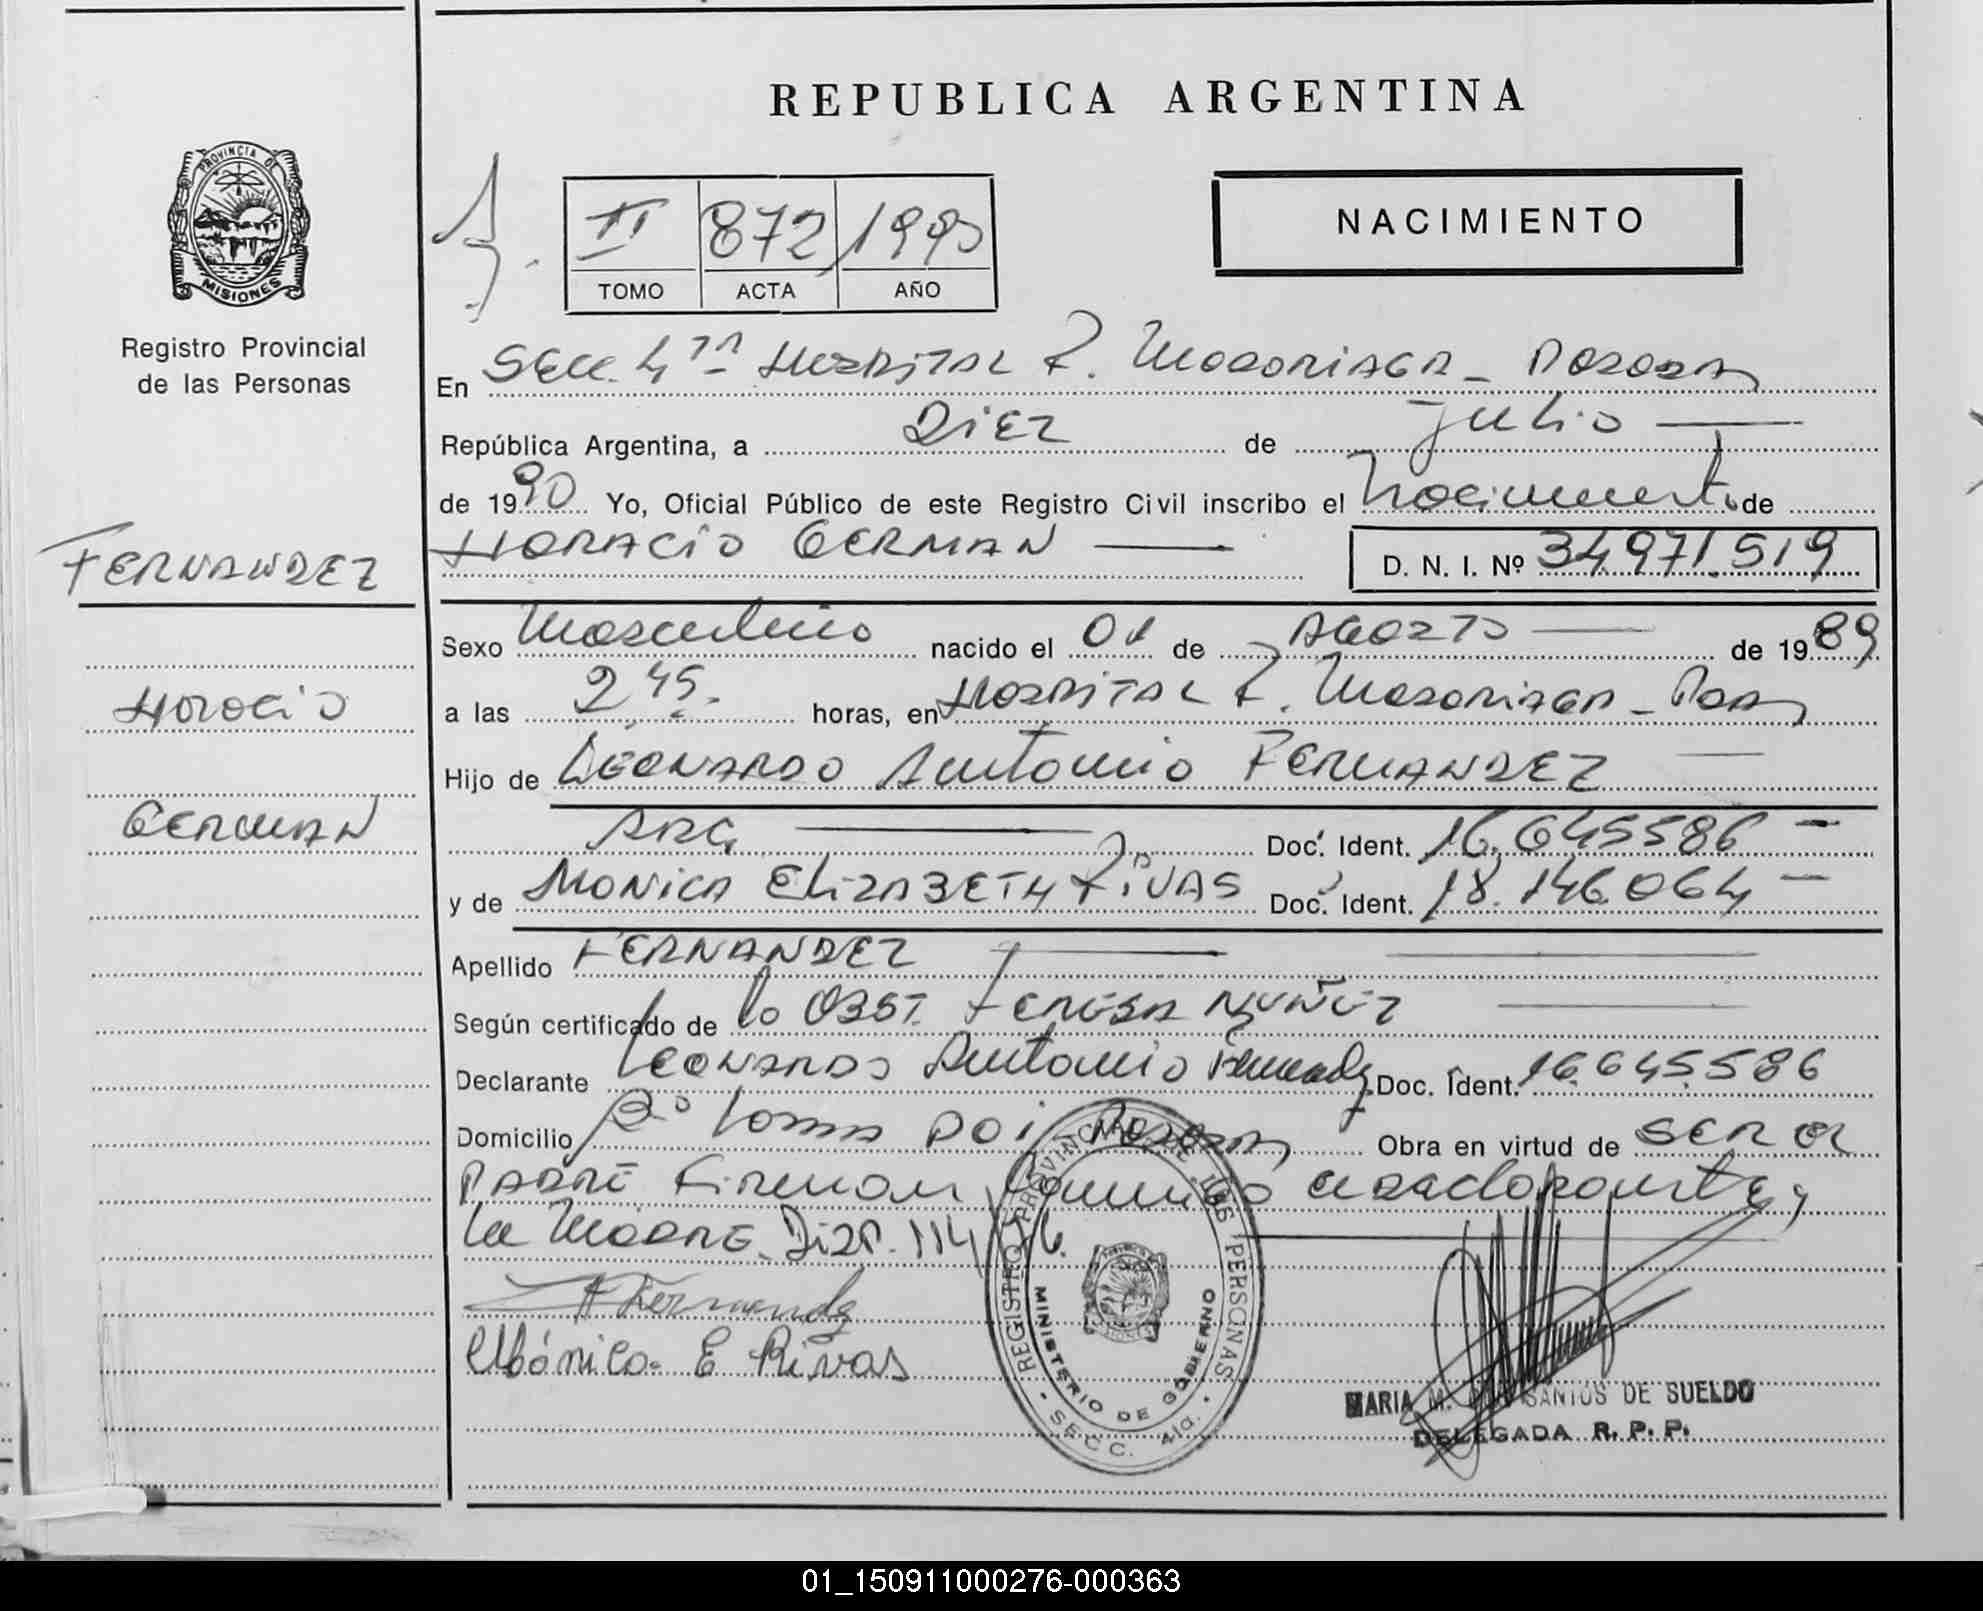 REPUBLICA ARGENTINA
PROVINCIA DE MISIONES
Registro Provincial
de las Personas
II 872 1990
TOMO ACTA AÑO
NACIMIENTO
En Secc. 4ta Hospital R. Madariaga - Posadas
República Argentina, a Diez de Julio
de 1990 Yo, Oficial Público de este Registro Civil inscribo el Nacimiento de
HORACIO GERMAN D. N. I. Nº 34971.519
FERNANDEZ
HORACIO
GERMAN
Sexo Masculino nacido el 01 de Agosto de 1989
a las 2 45. horas, en Hospital R. Madariaga - Pdas
Hijo de Leonardo Antonio FERNANDEZ
Arg. Doc. Ident. 16.645586 -
y de MONICA ELIZABETH RIVAS Doc. Ident. 18.146.064 -
Apellido FERNANDEZ
Según certificado de la Obst. Teresa Nuñez
Declarante Leonardo Antonio Fernandez Doc. Ident. 16.645.586
Domicilio Posadas Obra en virtud de ser el
padre Firman
la Madre. Disp. 114/76.
Fernandez
Mónica E Rivas
REGISTRO PROVINCIAL DE LAS PERSONAS
MINISTERIO DE GOBIERNO
SECC. 4ta.
MARIA M. SANTOS DE SUELDO
DELEGADA R. P. P.
01_150911000276-000363